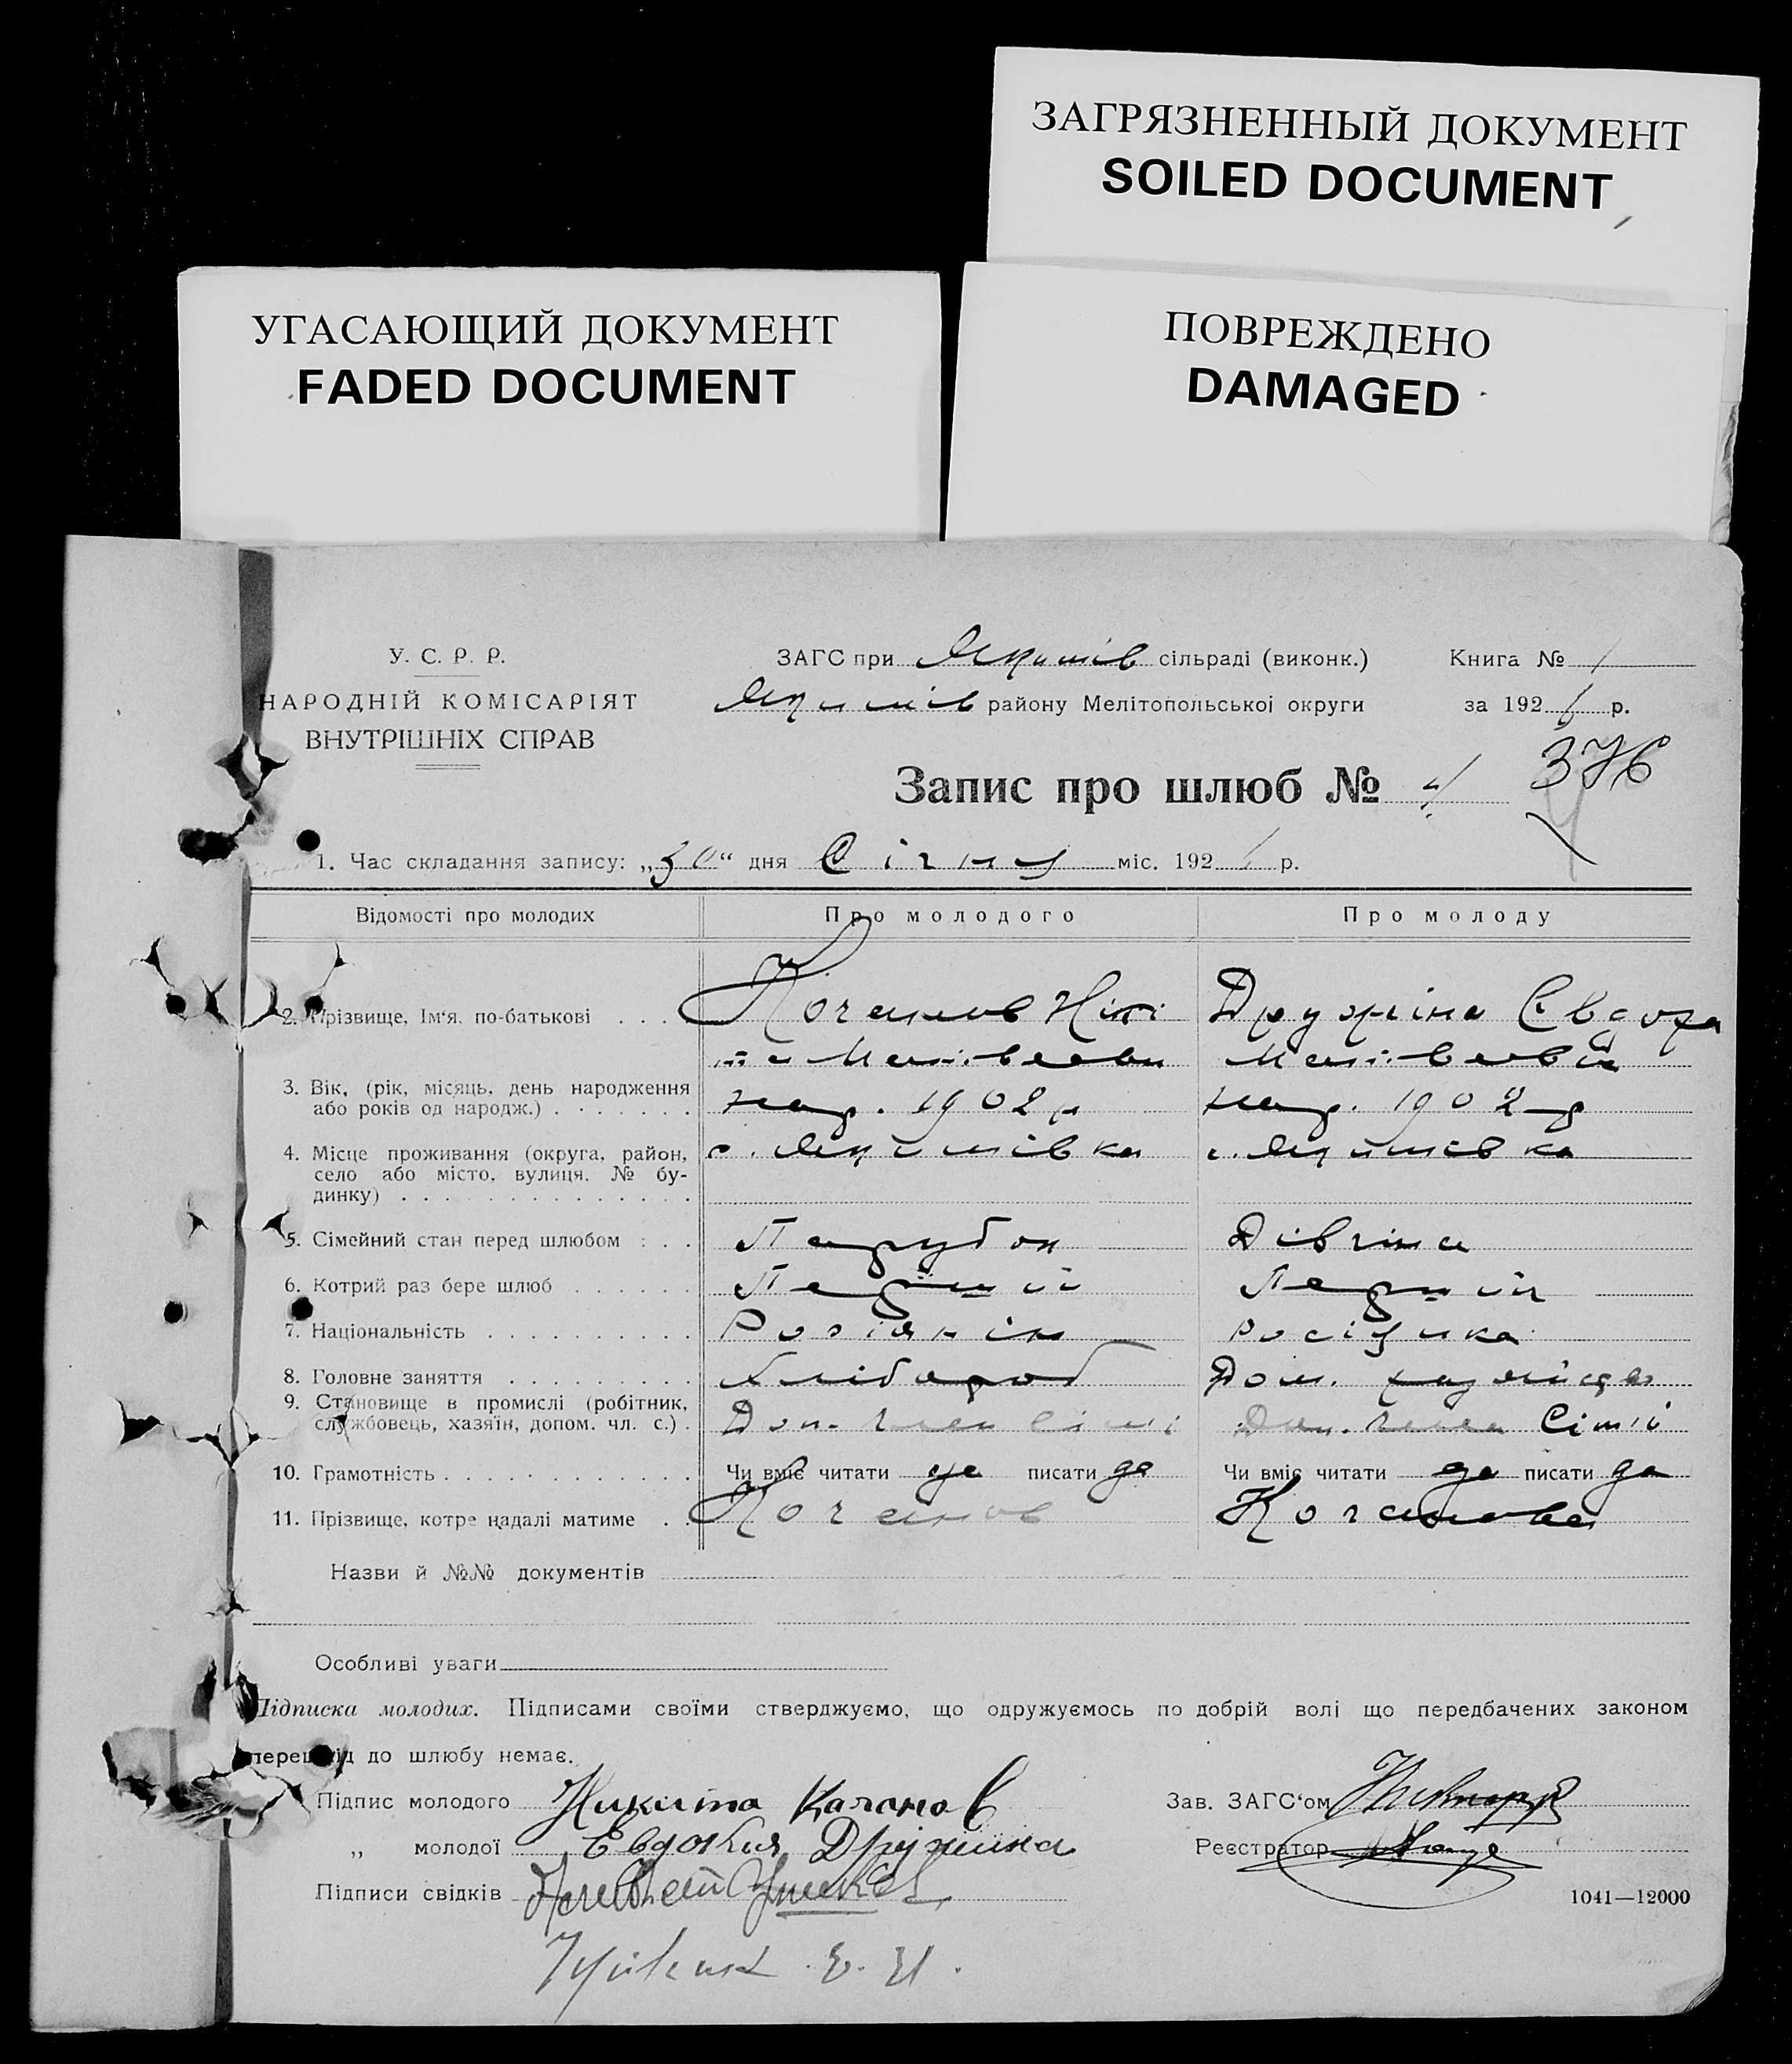 ЗАГРЯЗНЕННЫЙ ДОКУМЕНТ
SOILED DOCUMENT
УГАСАЮЩИЙ ДОКУМЕНТ
FADED DOCUMENT
ПОВРЕЖДЕНО
DAMAGED
У. С. Р. Р.
НАРОДНІЙ КОМІСАРІЯТ
ВНУТРІШНІХ СПРАВ
ЗАГС при Якимів сільраді (виконк.)
Якимів району Мелітопольської округи
Книга № 1
за 1926 р.
Запис про шлюб № 4
376
1. Час складання запису: „30“ дня Січня міс. 192 р.
Відомості про молодих Про молодого Про молоду
2. Прізвище, Ім'я, по-батькові . . . Качанов Нікі Дружіна Євдоха
та Матвеевич
3. Вік, (рік, місяць, день народження
або років од народж.) . . . . . . . нар. 1902 р нар. 1902 р
4. Місце проживання (округа, район, с. Якимівка с. Якимівка
село або місто, вулиця, № бу-
динку) . . . . . . . . . . . . . .
5. Сімейний стан перед шлюбом : . . Парубок Дівчина
6. Котрий раз бере шлюб . . . . . . Перший Перший
7. Національність . . . . . . . . . . Росіянін Росіянка
8. Головне заняття . . . . . . . . . Хлібороб Дом. хазяйство
9. Становище в промислі (робітник,
службовець, хазяїн, допом. чл. с.) . Доп. член сімї Доп. член Сімїї
10. Грамотність . . . . . . . . . . . . Чи вміє читати да писати да Чи вміє читати да писати да
11. Прізвище, котре надалі матиме . . Качанов Качанова
Назви й №№ документів
Особливі уваги
Підписка молодих. Підписами своїми стверджуємо, що одружуємось по добрій волі що передбачених законом
перешкід до шлюбу немає.
Підпис молодого Никита Качанов Зав. ЗАГС'ом
„ молодої Евдокия Дружина Реєстратор
Підписи свідків
1041—12000